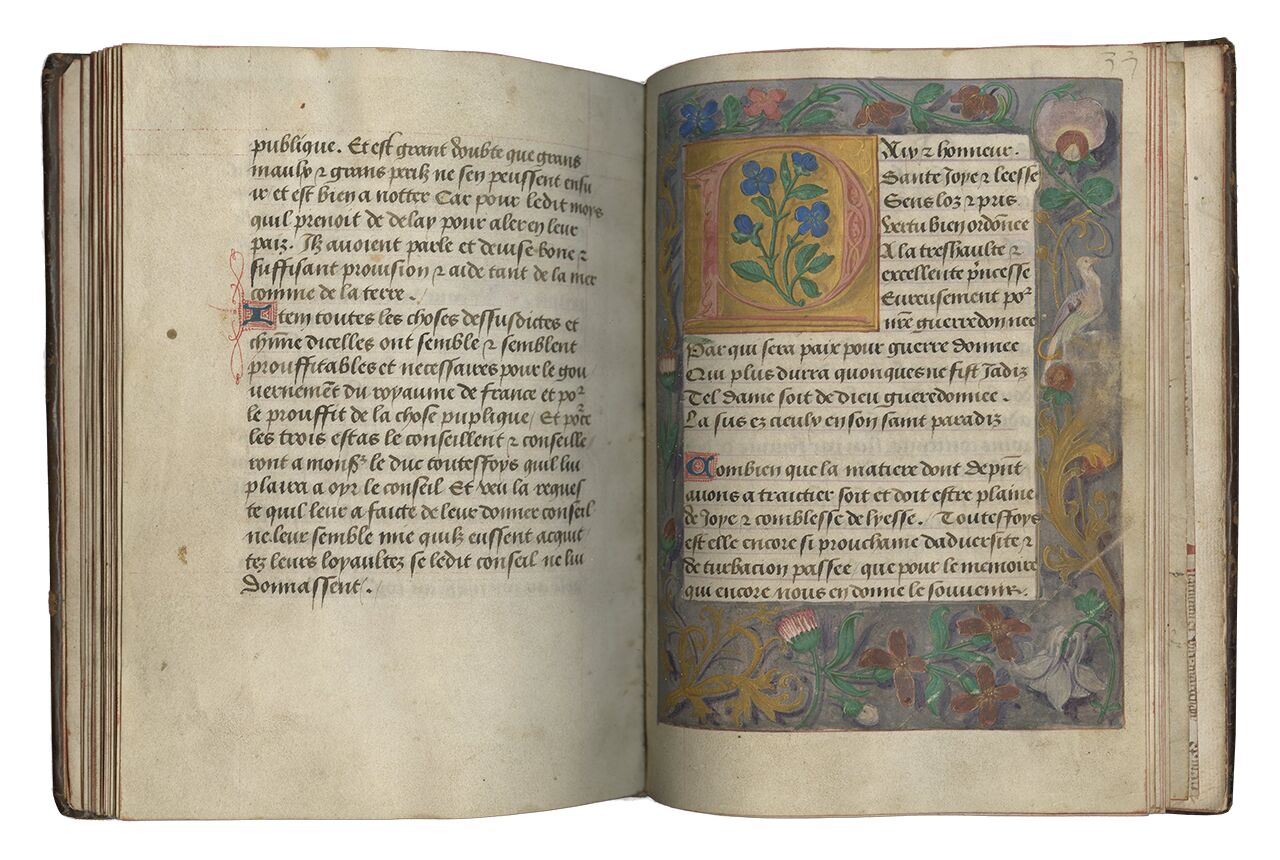 publique. Et est grant doubte que grans
maulx ⁊ grans perilz ne sen peussent ensu
ir et est bien a notter Car pour ledit moys
quil prenoit de delay pour aler en leur
paiz. Ilz avoient parle et devise bone ⁊
suffisant provision ⁊ aide tant de la mer
comme de la terre.
Item toutes les choses dessusdictes et
chũne dicelles ont semble ⁊ semblent
prouffitables et necessaires pour le gou
vernemẽt du royaume de france et poͬ
le prouffit de la chose puplique / Et
les trois estas le conseillent ⁊ conseille
ront a le duc toutesfoys quil luy
plaira a oyr le conseil Et veu la reques
te quil leur a faicte de leur donner conseil
ne leur semble mie quilz eussent acquit
tez leurs loyaultez se ledit conseil ne luy
donnassent /.
33
Duy ⁊ honneur.
Sante Joye ⁊ leesse
Sens loz ⁊ pris
Vertu bien ordõnee
A la treshaulte ⁊
excellente p̃ncesse
Eureusement poͬ
nr̃e guerredonnee
Par qui sera paix pour guerre donnee
Qui plus durra quonquesne fist Jadiz
Tel dame soit de dieu gueredonnee.
La sus ez cieulx en son saint paradiz
Combien que la matiere dont de p̃nt
avons a traictier soit et doit estre plaine
de Joye ⁊ comblesse de lyesse. / Toutesfoys
est elle encore si prouchaine dadversite ⁊
de turbacion passee / que pour le memoire
qui encore nous en donne le souvenir.